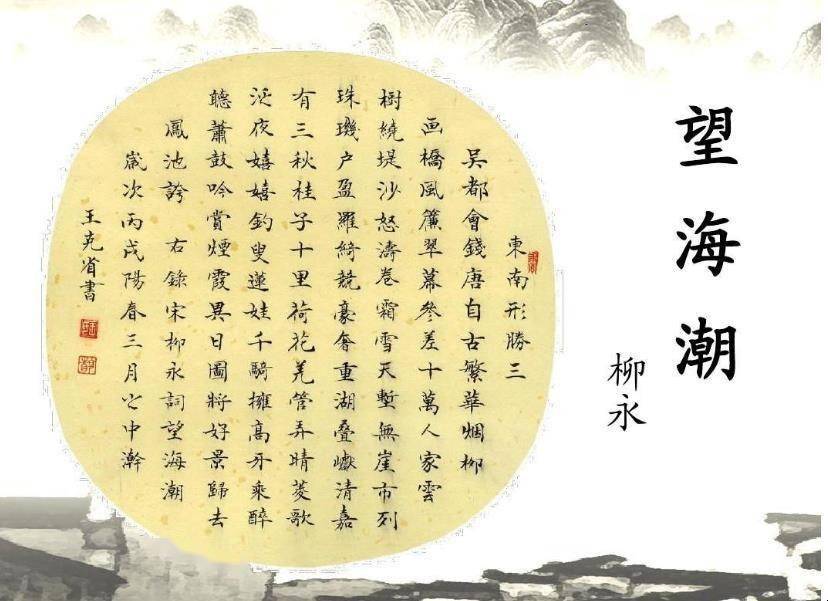 望海潮
柳永
東南形勝三
吳都會錢唐自古繁華烟柳
画橋風簾翠幕參差十萬人家雲
樹繞堤沙怒濤卷霜雪天塹無崖市列
珠璣户盈羅綺競豪奢重湖叠巘清嘉
有三秋桂子十里荷花羌管弄晴菱歌
泛夜嬉嬉釣叟蓮娃千騎擁高牙乘醉
聽蕭鼓吟賞煙霞異日圖將好景歸去
鳳池誇 右錄宋柳永詞望海潮
歲次丙戌陽春三月之中澣
王克省書